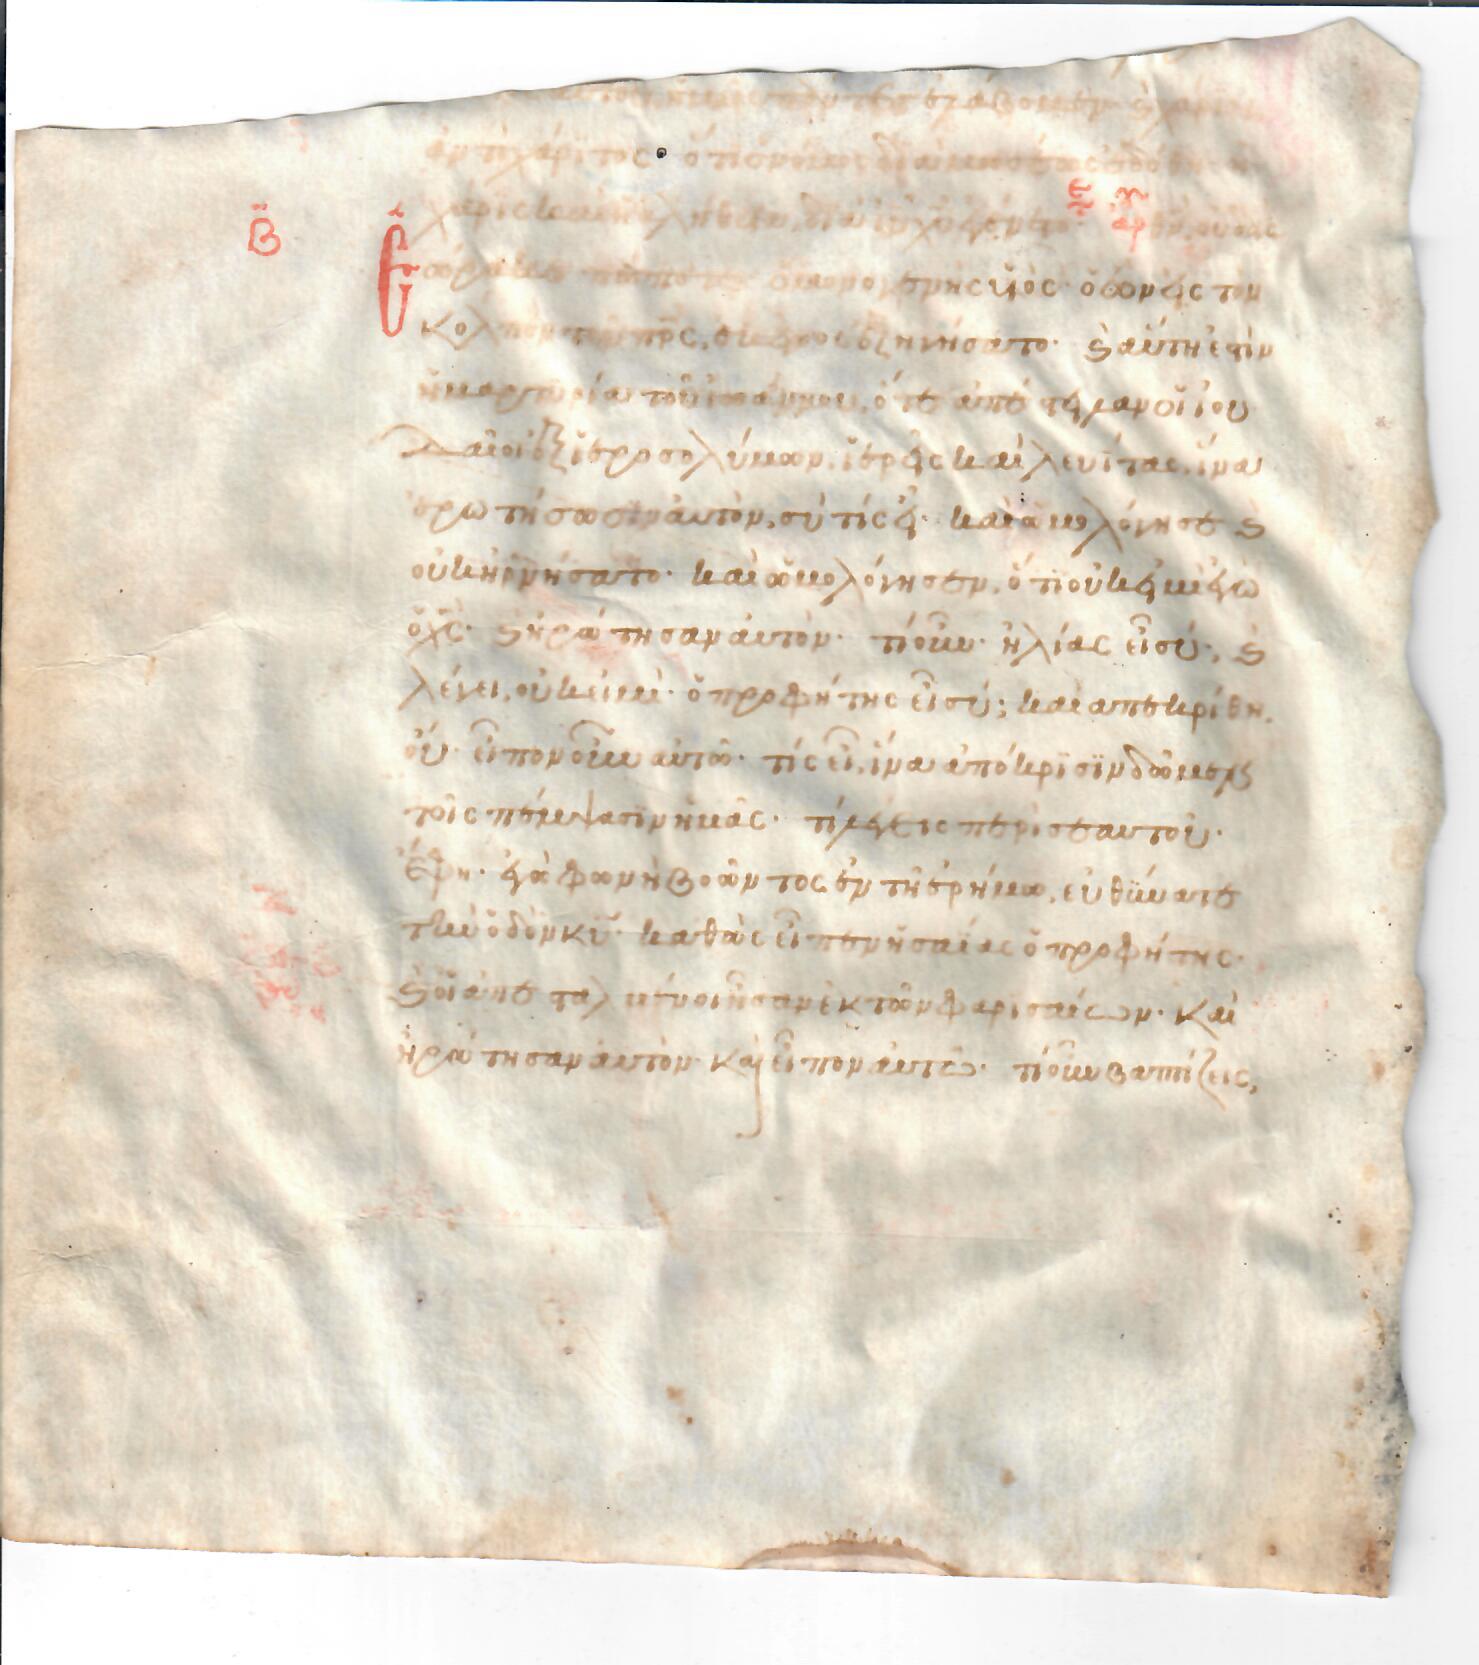 ἡμεῖς πάντες ἐλάβομεν· ς χάριν
ἀντὶ χάριτος· ὅτι ὁ νόμος διὰ μωσέως ἐδόθη· ἡ
χάρις καὶ ἡ ἀλήθεια, διὰ ἰυ χυ ἐγένετο· θν, οὐδεὶς
Β
ἑώρακε πώποτε· ὁ μονογενὴς υἱὸς· ὁ ὢν εἰς τὸν
κόλπον τοῦ πρς, ἐκεῖνος ἐξηγήσατο· ς αὕτη ἐστὶν
ἡ μαρτυρία τοῦ ἰωάννου, ὅτε ἀπέστειλαν οἱ ἰου
δαῖοι ἐξ ἱεροσολύμων, ἱερεῖς καὶ λευίτας, ἵνα
ἐρωτήσωσιν αὐτὸν, σὺ τίς εἶ· καὶ ὡμολόγησε ς
οὐκ ἠρνήσατο· καὶ ὡμολόγησεν, ὅτι οὐκ εἰμὶ ἐγὼ
ὁ χς· ς ἠρώτησαν αὐτὸν· τί οὖν· ἠλίας εἶ σύ; ς
λέγει, οὐκ εἰμί· ὁ προφήτης εἶ σύ; καὶ ἀπεκρίθη,
οὔ· εἶπον οὖν αὐτῶ· τίς εἶ, ἵνα ἀπόκρισιν δῶμεν
τοῖς πέμψασιν ἡμᾶς· τί λέγεις περὶ σεαυτοῦ·
ἔφη· ἐγὼ φωνὴ βοῶντος ἐν τῆ ἐρήμω, εὐθύνατε
τὴν ὁδὸν κυ· καθὼς εἶπεν ἡσαΐας ὁ προφήτης·
ς οἱ ἀπεσταλμένοι ἦσαν ἐκ τῶν φαρισαίων· καὶ
ἠρώτησαν αὐτὸν· καὶ εἶπον αὐτῶ· τί οὖν βαπτίζεις,